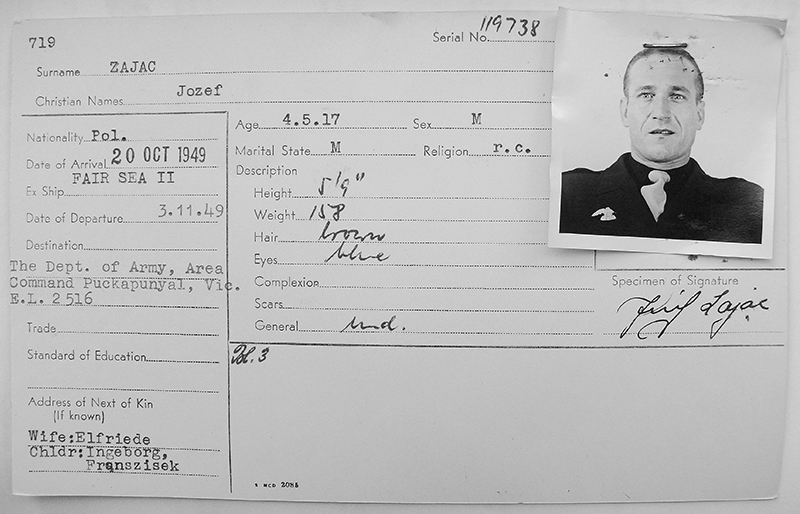 719
Serial No. 119738
Surname ZAJAC
Christian Names Jozef
Nationality Pol.
Date of Arrival 20 OCT 1949
FAIR SEA II
Ex Ship
Date of Departure 3.11.49
Destination
The Dept. of Army, Area
Command Puckapunyal, Vic.
E.L. 2516
Trade
Standard of Education
Address of Next of Kin
(If known)
Wife:Elfriede
Chldr:Ingeborg,
Franszisek
Age 4.5.17 Sex M
Marital State M Religion r.c.
Description
Height 5'9"
Weight 158
Hair brown
Eyes blue
Complexion
Scars
General
Pol. 3
Specimen of Signature
Zajac
S MCD 2085